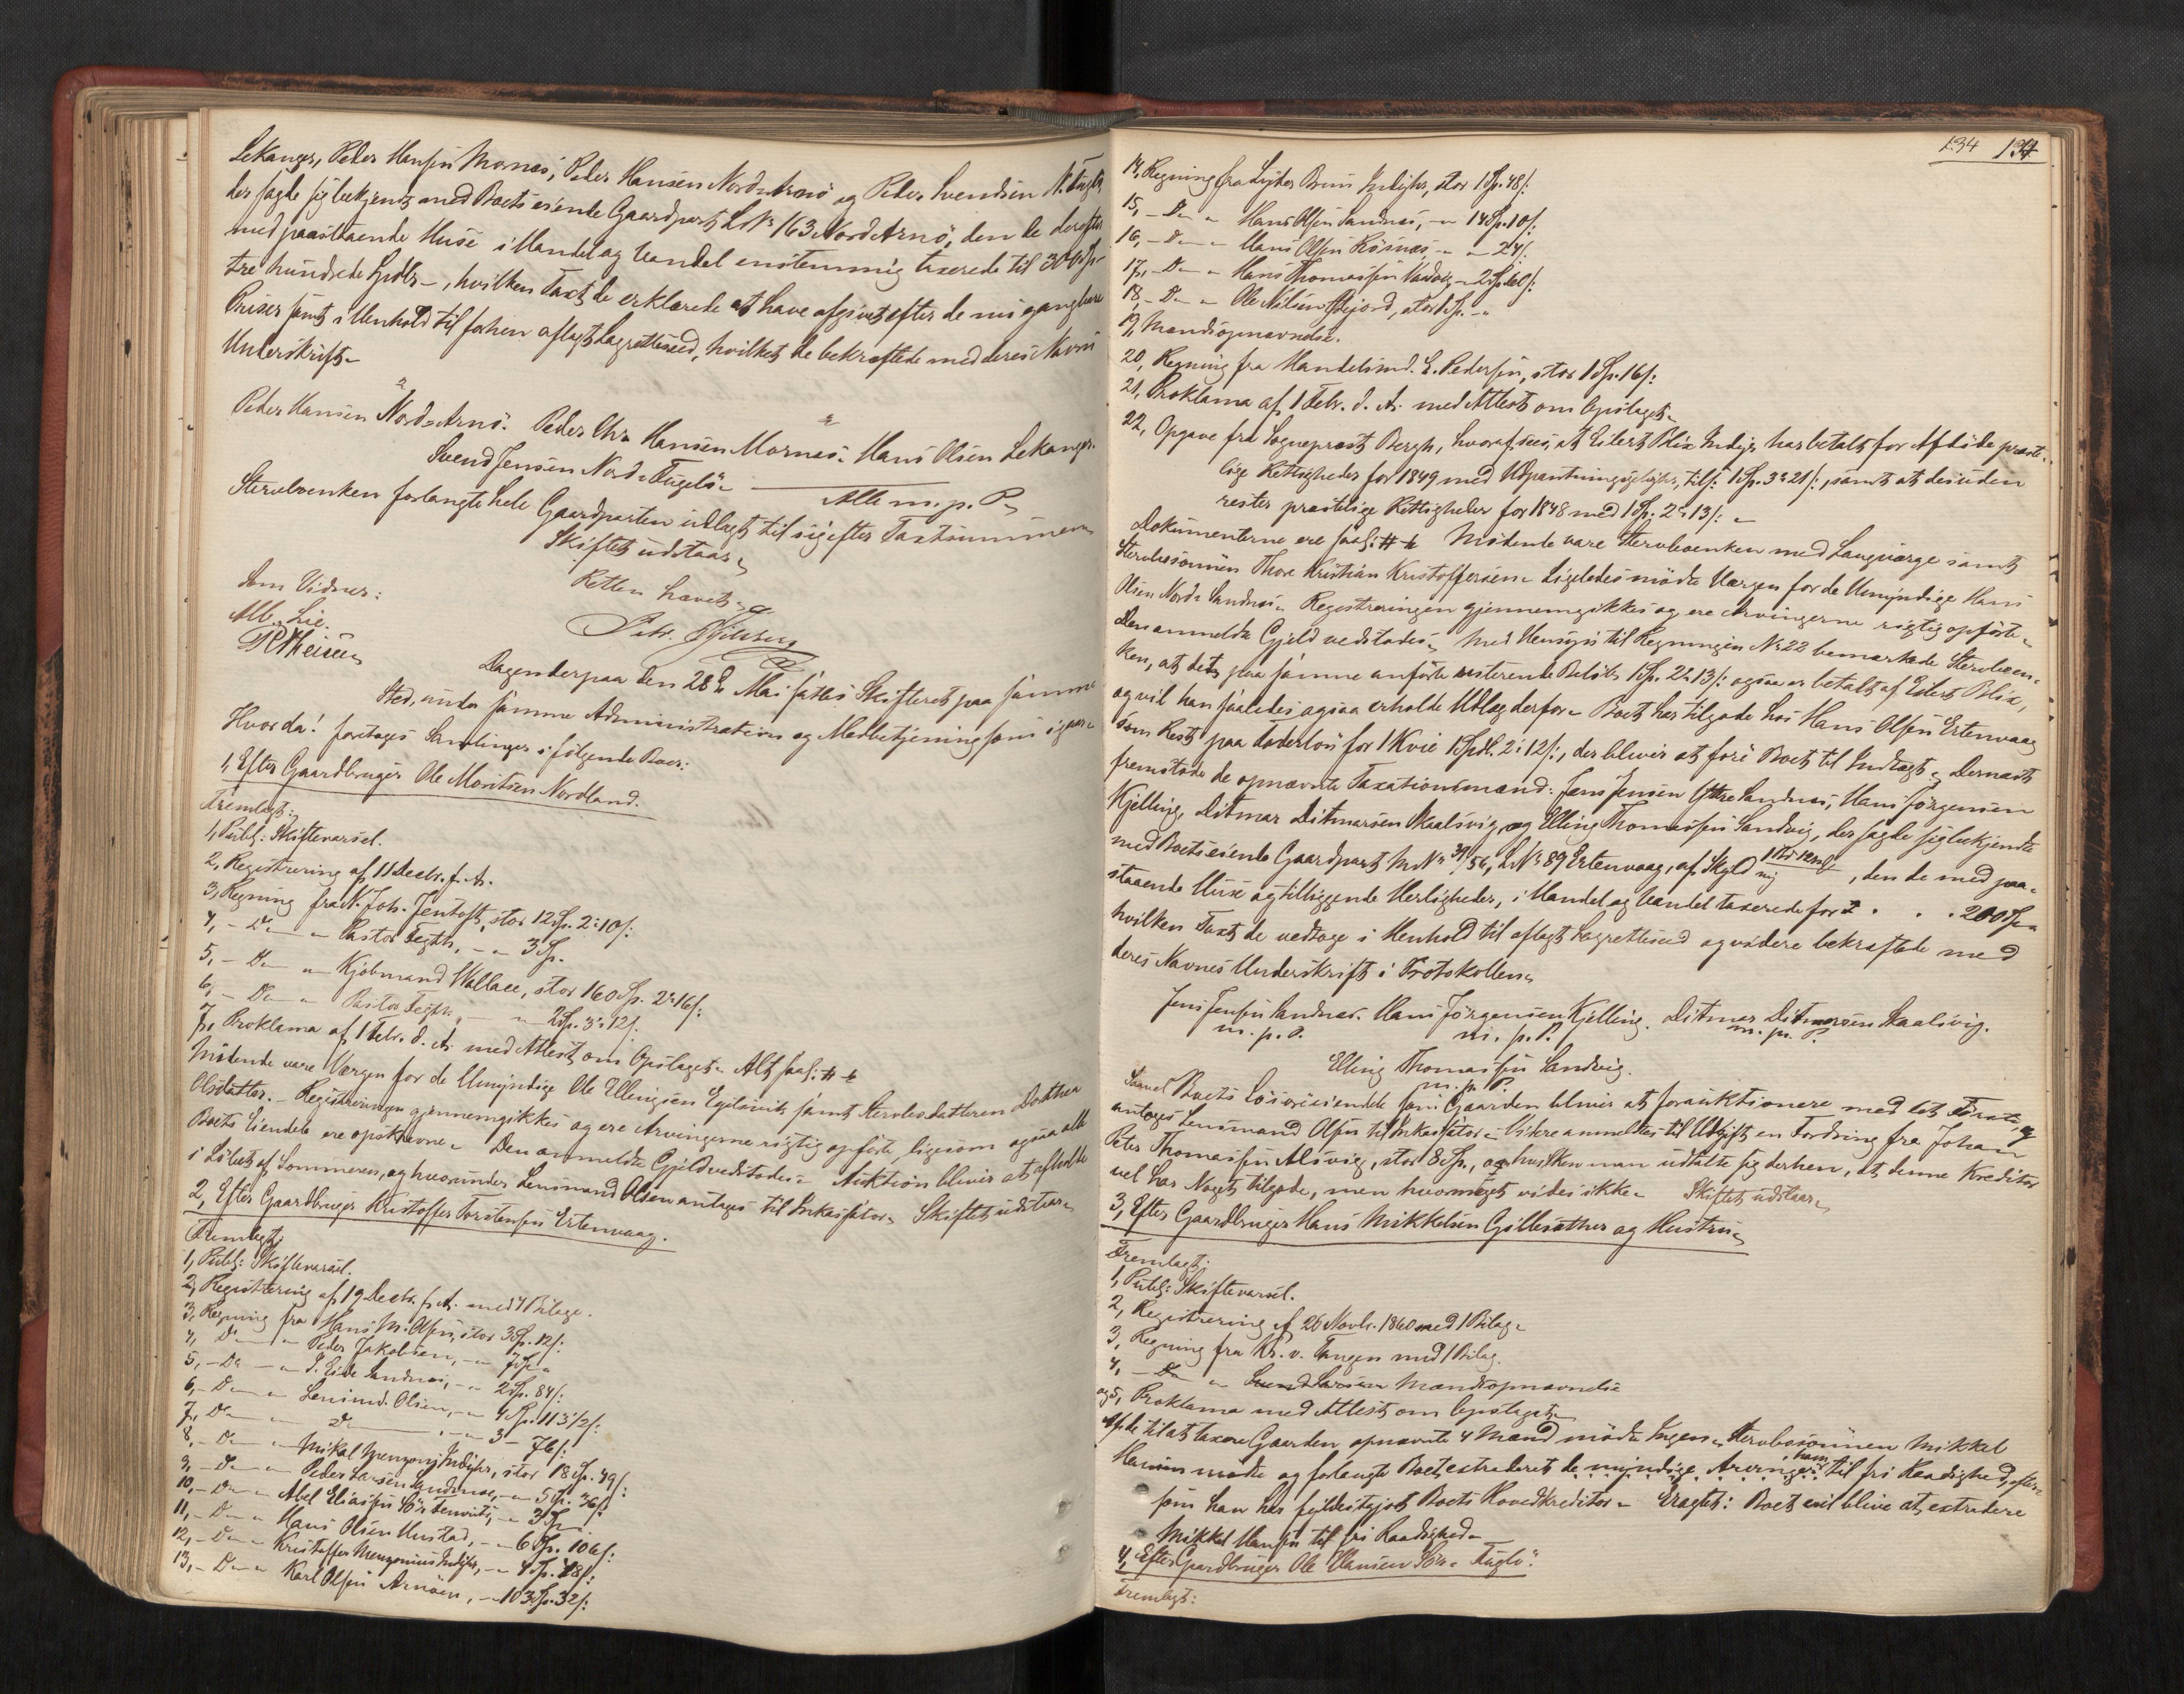 Lekanger, Peder Hansen Mornes, Peder Hansen Nord-Arnö og Peder Svendsen N. Fugl
der sagde sig bekjendt med Boets eiende Gaardpart L. No 163 Nord Arnö, den de derefter
med paastaaende Huse i Handel og Vandel enstemmig taxerede til 300 Sp
tre hundrede Spdlr -, hvilken Taxt de erklærede at have afgivet efter de nu gangbare
Priser samt i Henhold til forhen aflagt Lagretteseed, hvilket de bekræftede med deres Navns
Underskrift.
Peder Hansen Nord-Arnö. Peder Chr. Hansen Mornes. Hans Olsen Lekanger.
Svend Jensen Nord-Fuglö
Alle m. p. P.
Stervboenken forlangte hele Gaardparten udlagt til sig efter Taxtsummen
Skiftet udstaar
Retten hævet
Som Vidner:
Alb. Lie.
Dagen derpaa den 28de Mai sattes Skifteret paa samme
Sted, under samme Administration og Medbetjening som igaar
Hvor da! foretoges Samlinger i følgende Boer:
1, Efter Gaardbruger Ole Moritsen Nordland.
Fremlagt:
1, Publ: Skiftevarsel.
2, Registrering af 11 Decbr. f. A.
3, Regning fra N. Joh. Jentoft, stor 12 Sp. 2: 10 s:
4, - Do - " Pastor Tegth, - " 3 Sp.
5, - Do - " Kjøbmand Wallace, stor 160 Sp. 2: 16 s:
6, - Do - " Pastor Tegth, - " 2 Sp. 3: 12 s.
7, Proklama af 1 Febr. d. A. med Attest om Opslaget. Alt saal: #
Mødende vare Værgen for de Umyndige Ole Ellingsen Egilsvik samt Stervbodatteren Dorthea
Olsdatter. - Registreringen gjennemgikkes og ere Arvingerne rigtig opførte ligesom ogsaa alle
Boets Eiendele ere opskrevne. Den anmeldte Gjeld vedstodes. Auktion bliver at afholde
i Løbet af Sommeren, og hvorunder Lensmand Olsen antages til Inkassator. Skiftet udstaar
2, Efter Gaardbruger Kristoffer Torstensen Ertenvaag.
Fremlagt:
1, Publ: Skiftevarsel.
2, Registrering af 19 Decbr. f. A. med 4 Bilage.
3, Regning fra Hans M. Olsen, stor 3 Sp. 12 s:
4, Do " Peder Jakobsen, - " 7 Sp "
5, - Do - " P. Eide Sandnes, - " 2 Sp. 84 s:
6, - Do - " Lensmd. Olsen, - " 4 Sp. 113 1/2 s:
7, Do " Do , - " 3 - 76 s:
8, - Do " Mikal Indijer, stor 18 Sp. 49 s:
9, - Do - " Peder Larsen, - " 5 Sp. 36 s:
10, - Do " Abel Eliassen Sör, - " 3 Sp
11, - Do " Hans Olsen Hustad, - " 6 Sp. 106 s:
12, - Do - " Kristoffer Indijer, - " 4 Sp. 48 s:
13, - Do " Karl Olsen Arnöen, - " 103 Sp. 32 s:
134 134
14, Regning fra Lyder Bruun Indijer, stor 1 Sp. 48 s:
15, - Do " Hans Olsen Sandnes, - " 14 Sp. 10 s:
16, - Do - " Hans Olsen Rösnes, - " 24 s:
17, - Do - " Hans Thomassen, - 2 Sp. 60 s:
18, - Do " Ole Nilsen, stor 1 Sp. - "
19, Mandsopnævnelse.
20, Regning fra Handelsmd. E. Pedersen, stor 1 Sp. 16 s:
21, Proklama af 1 Febr. d. A. med Attest om Opslaget.
22, Opgave fra Sogneprest Bergh, hvoraf sees, at Eilert Blix Indijer har betalt for Afdøde præste-
lige Rettigheder for 1849 med Udpantningsudgifter, tils: 1 Sp. 3: 21 s:, samt at desuden
rester præstelige Rettigheder for 1848 med 1 Sp. 2: 13 s: -
Dokumenterne ere saal: # Mødende vare Stervboenken med Laugværge samt
Stervbosønnen Thore Kristian Kristoffersen. Ligeledes mødte Værgen for de Umyndige Hans
Olsen Nord-Sandnes. Registreringen gjennemgikkes og ere Arvingerne rigtig opførte.
Den anmeldte Gjeld vedstodes. Med Hensyn til Regningen No 22 bemærkede Stervboen-
ken, at det paa samme anførte resterende Beløb 1 Sp. 2: 13 s: ogsaa er betalt af Eilert Blix,
og vil han saaledes ogsaa erholde Udlæg derfor. Boet har tilgode hos Hans Olsen Ertenvaag
som Rest paa Foderløn for 1 Kvie 1 Spdl. 2: 12 s:, der bliver at føre Boet til Indtægt. Dernæst
fremstode de opnævnte Taxationsmænd: Jens Jensen Sandnes, Hans Jörgensen
Kjelling, Ditmar Ditmarsen Skaalsvig, og Elling Thomassen Sandvig, der sagde sig bekjendte
med Boets eiende Gaardpart M. No 31/56, L. No 89 Ertenvaag, af Skyld , den de med paa-
staaende Huse og tilliggende Herligheder, i Handel og Vandel taxerede for . . . 200 Sp
hvilken Taxt de vedtoge i Henhold til aflagt Lagretteseed og videre bekræftede med
deres Navnes Underskrift i Protokollen.
Jens Jensen Sandnes. Hans Jörgensen Kjelling. Ditmar Ditmarsen Skaalsvig.
m. p. P. m. p. P. m. p. P.
Elling Thomassen Sandvig.
m. p. P.
Saavel Boets Løsøreiendele som Gaarden bliver at forauktionere med det Første og
antages Lensmand Olsen til Inkassator. Videre anmeldtes til Udgift en Fordring fra Johan
Peter Thomassen Alsvig, stor 8 Sp., om hvilken man udtalte sig derhen, at denne Kreditor
vel har Noget tilgode, men hvormeget vides ikke. Skiftet udstaar
3, Efter Gaardbruger Hans Mikkelsen Gillesætner og Hustru
Fremlagt:
1, Publ: Skiftevarsel.
2, Registrering af 26 Novbr. 1860 med 1 Bilag.
3, Regning fra Kr. v. Tangen med 1 Bilag.
4, Mandsopnævnelse
og 5, Proklama med Attest om Opslaget.
Af de til at taxere Gaarden opnævnte 4 Mænd mødte Ingen. Stervbosønnen Mikkel
Hansen mødte og forlangte Boet extraderet de myndige Arvinger ham til fri Raadighed, efter-
som han har fyldestgjort Boets Hovedkreditor. Eragtet: Boet vil blive at extradere
Mikkel Hansen til fri Raadighed.
4, Efter Gaardbruger Ole Hansen Sör-Fuglö.
Fremlagt: